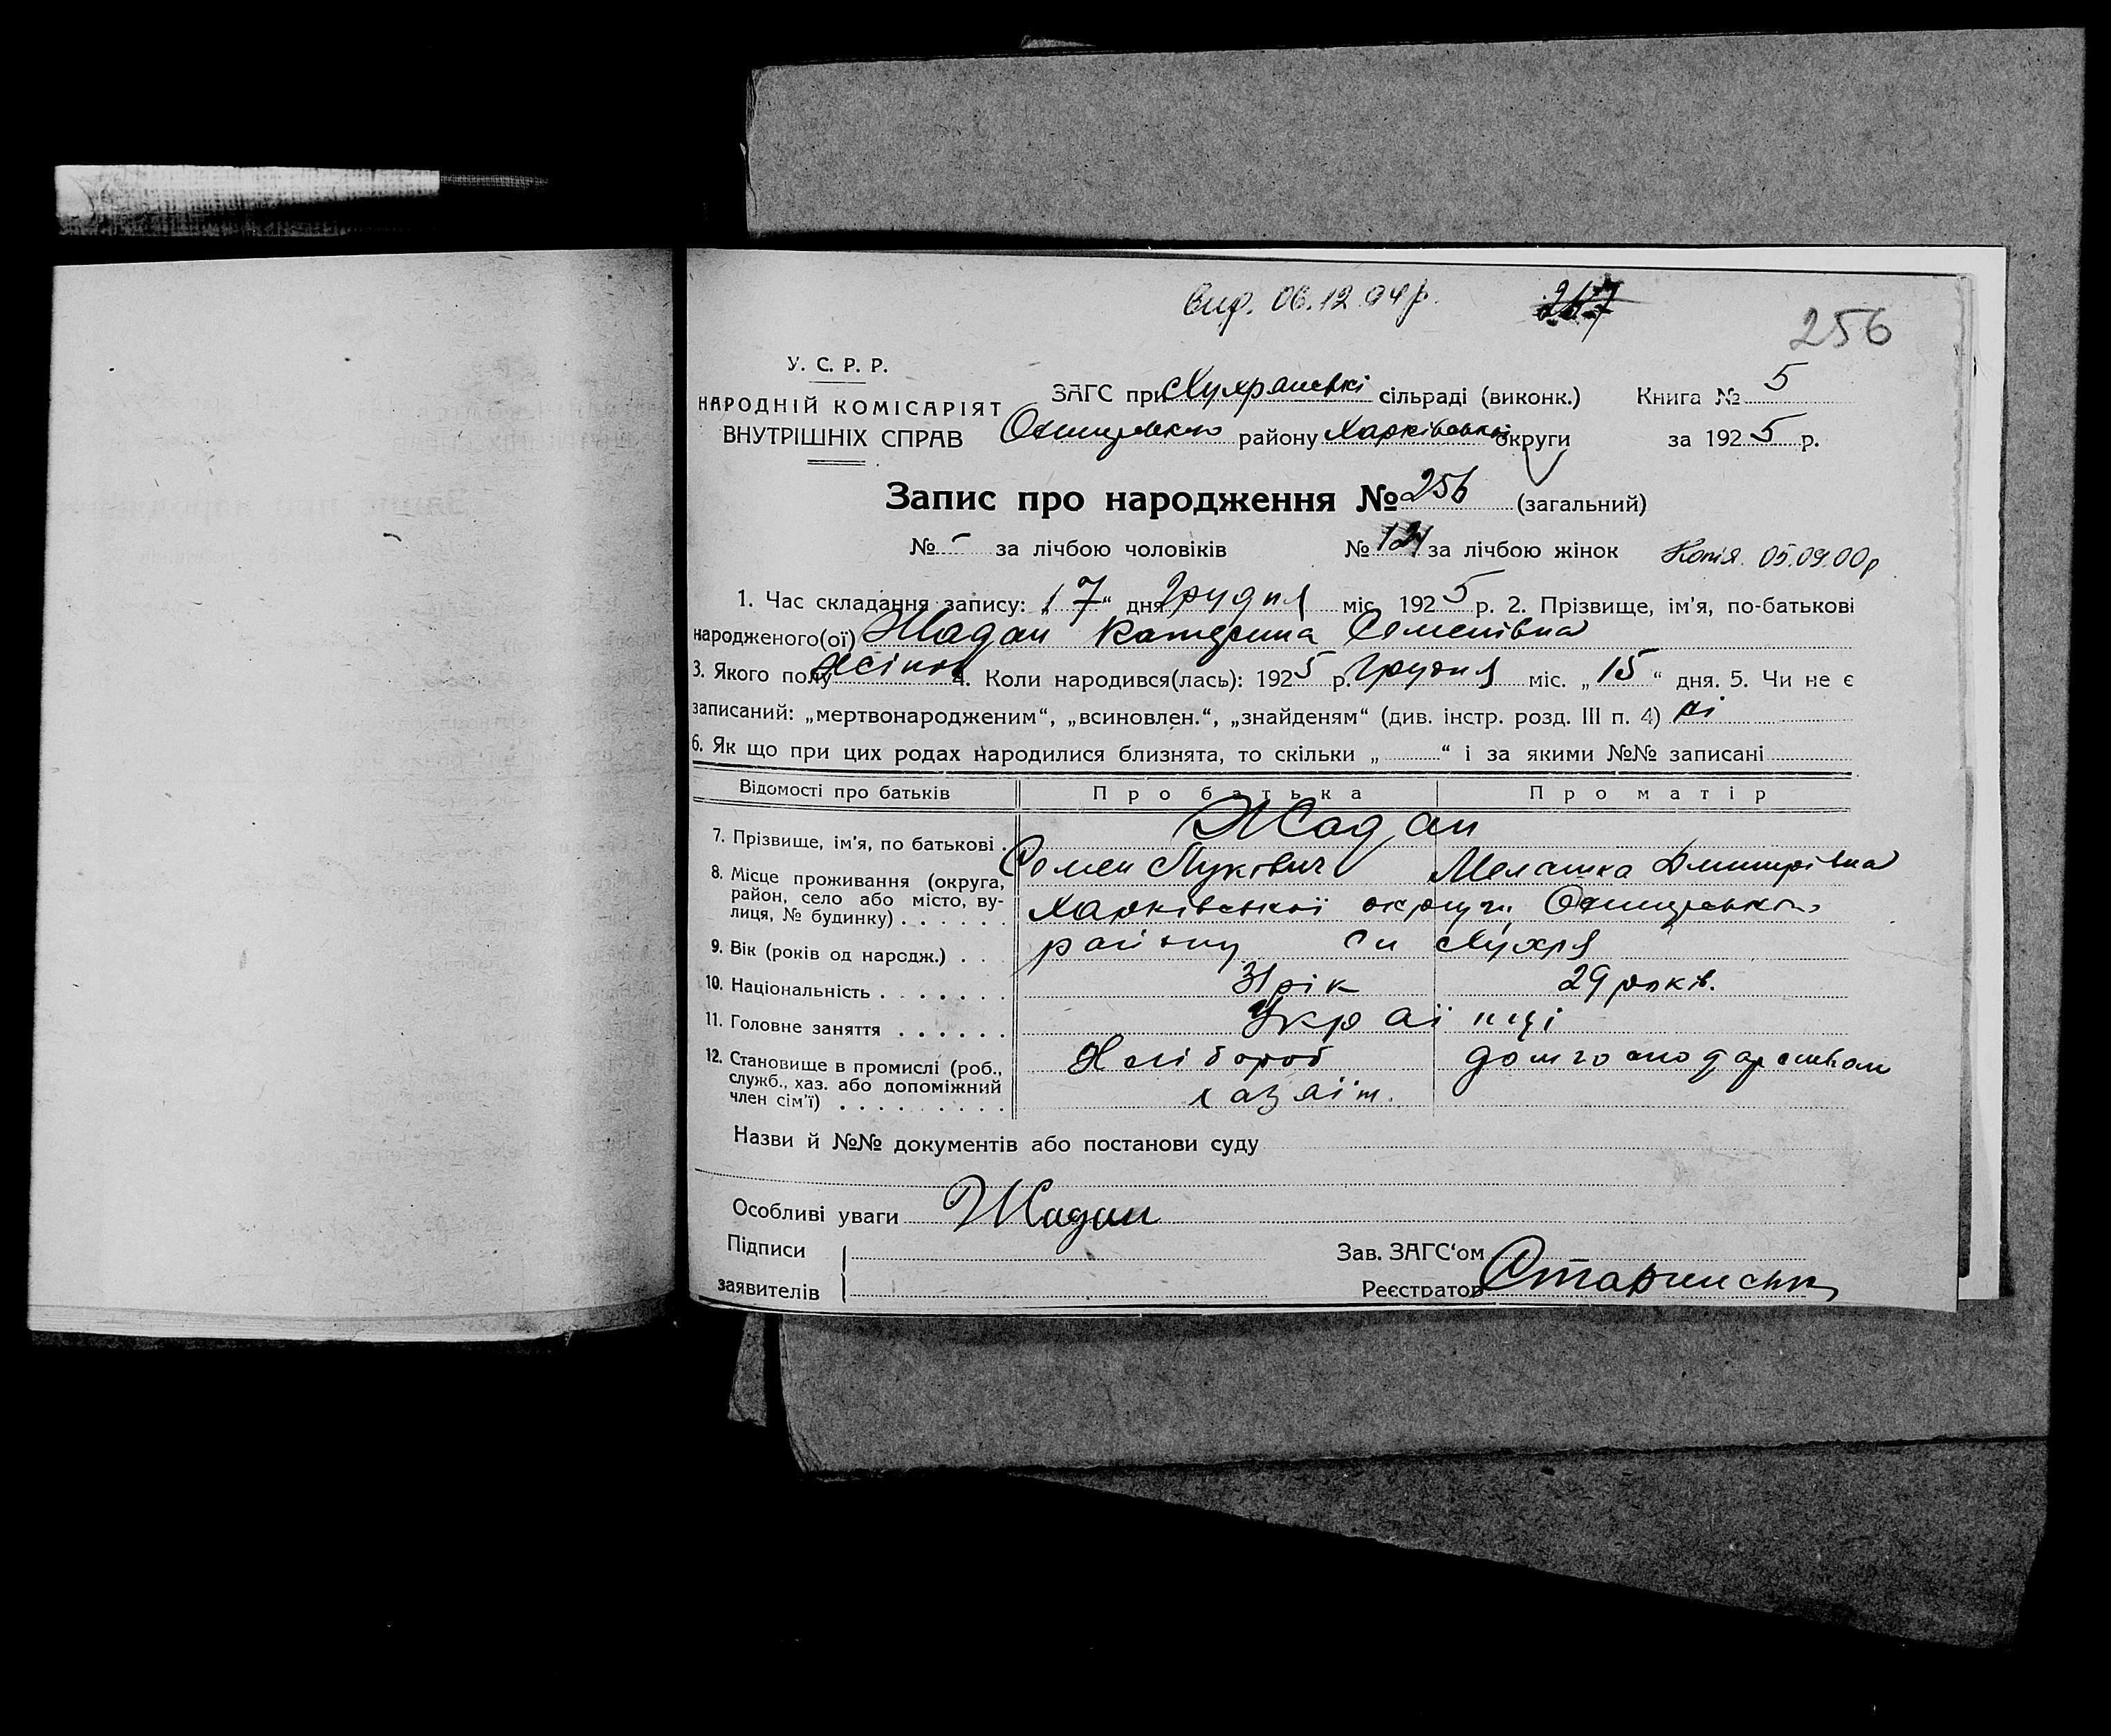 Вид. 06.12.94р.
256
У. С. Р. Р.
НАРОДНІЙ КОМІСАРІЯТ
ВНУТРІШНІХ СПРАВ
ЗАГС при сільраді (виконк.) Книга № 5
району Харківської округи за 1925 р.
Запис про народження № 256 (загальний)
№ - за лічбою чоловіків № 121 за лічбою жінок Копія 05.09.00р
1. Час складання запису: „17“ дня Грудня міс. 1925 р. 2. Прізвище, ім’я, по-батькові
народженого(ої) Жадан Катерина Семенівна
3. Якого полу жіноч 4. Коли народився(лась): 1925 р. Грудня міс. „15“ дня. 5. Чи не є
записаний: „мертвонародженим“, „всиновлен.“, „знайденям“ (див. інстр. розд. III п. 4) ні
6. Як що при цих родах народилися близнята, то скільки „ “ і за якими №№ записані
Відомості про батьків Про батька Про матір
7. Прізвище, ім’я, по батькові . Жадан
Семен Лукович Мелашка Дмитрівна
8. Місце проживання (округа,
район, село або місто, ву-
лиця, № будинку) . . . . . .
Харківської округи
району
9. Вік (років од народж.) . .
31 рік 29 років.
10. Національність . . . . . . .
Українці
11. Головне заняття . . . . . .
Хлібороб домгосподарством
12. Становище в промислі (роб.,
служб., хаз. або допоміжний
член сім’ї) . . . . . . . . .
хазяїн.
Назви й №№ документів або постанови суду
Особливі уваги Жадан
Підписи
заявителів
Зав. ЗАГС‘ом
Реєстратор